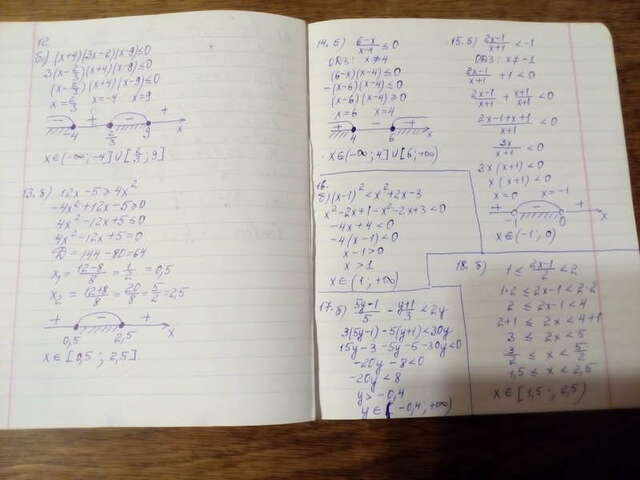 12.
б) (x+4)(3x-2)(x-9)≤0
3(x-2/3)(x+4)(x-9)≤0
(x-2/3)(x+4)(x-9)≤0
x=2/3 x=-4 x=9
- + - +
-4 2/3 9 x
x∈(-∞;-4]∪[2/3;9]
13. б) 12x-5≥4x²
-4x²+12x-5≥0
4x²-12x+5≤0
4x²-12x+5=0
D=144-80=64
x₁=(12-8)/8=1/2=0,5
x₂=(12+8)/8=20/8=5/2=2,5
+ - +
0,5 2,5 x
x∈[0,5; 2,5]
14. б) (6-x)/(x-4)≤0
ОДЗ: x≠4
(6-x)(x-4)≤0
-(x-6)(x-4)≤0
(x-6)(x-4)≥0
x=6 x=4
+ - +
4 6 x
x∈(-∞;4]∪[6;+∞)
15. б) (2x-1)/(x+1)<-1
ОДЗ: x≠-1
(2x-1)/(x+1)+1<0
(2x-1)/(x+1)+(x+1)/(x+1)<0
(2x-1+x+1)/(x+1)<0
3x/(x+1)<0
x(x+1)<0
x=0 x=-1
+ - +
-1 0 x
x∈(-1; 0)
16.
б) (x-1)²<x²+2x-3
x²-2x+1-x²-2x+3<0
-4x+4<0
-4(x-1)<0
x-1>0
x>1
x∈(1; +∞)
17. б) (5y-1)/5-(y+1)/3<2y
3(5y-1)-5(y+1)<30y
15y-3-5y-5-30y<0
-20y-8<0
-20y<8
y>-0,4
-0,4; +∞)
18. б) 1≤(2x-1)/2<2
1·2≤2x-1<2·2
2≤2x-1<4
2+1≤2x<4+1
3≤2x<5
3/2≤x<5/2
1,5≤x<2,5
x∈[1,5; 2,5)